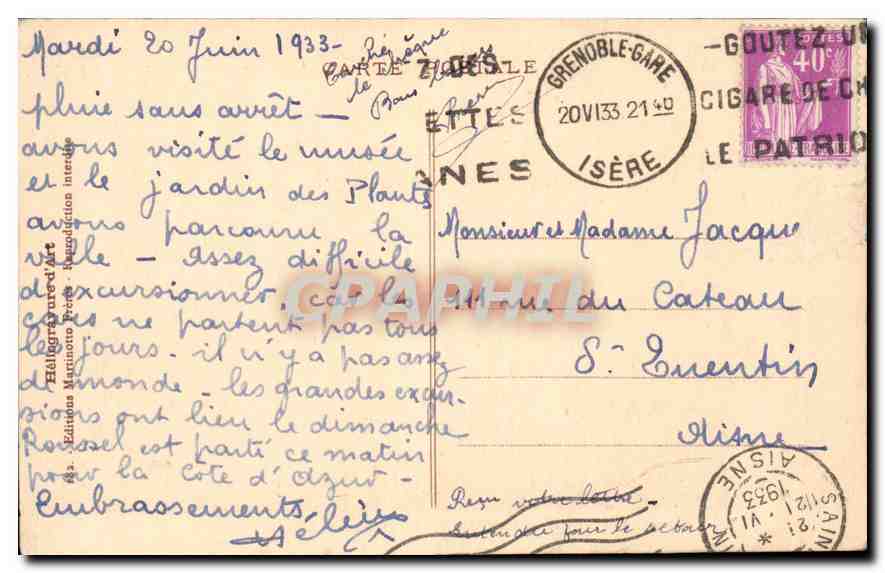 Mardi 20 Juin 1933 -
pluie sans arrêt -
avons visité le musée
et le jardin des Plantes
avons parcouru la
ville - Assez difficile
d'excursionner, car les
cars ne partent pas tous
les jours - il n'y a pas assez
de monde - les grandes excur-
sions ont lieu le dimanche
Roussel est parti ce matin
pour la Côte d'Azur -
Embrassements
Hélène
CARTE POSTALE
Bons
Z-DES-
ETTES
ANES
GRENOBLE-GARE
20 VI 33 21 40
ISÈRE
-GOUTEZ UN
CIGARE DE CH
LE PATRIO
POSTES
40c
Monsieur et Madame Jacque
111 rue du Cateau
St Quentin
Aisne
Reçu votre lettre
Entendu pour le
SAIN
AISNE
21 VI
1933
Héliogravure d'Art
Editions Martinotto Frères - Reproduction interdite
CPAPHIL